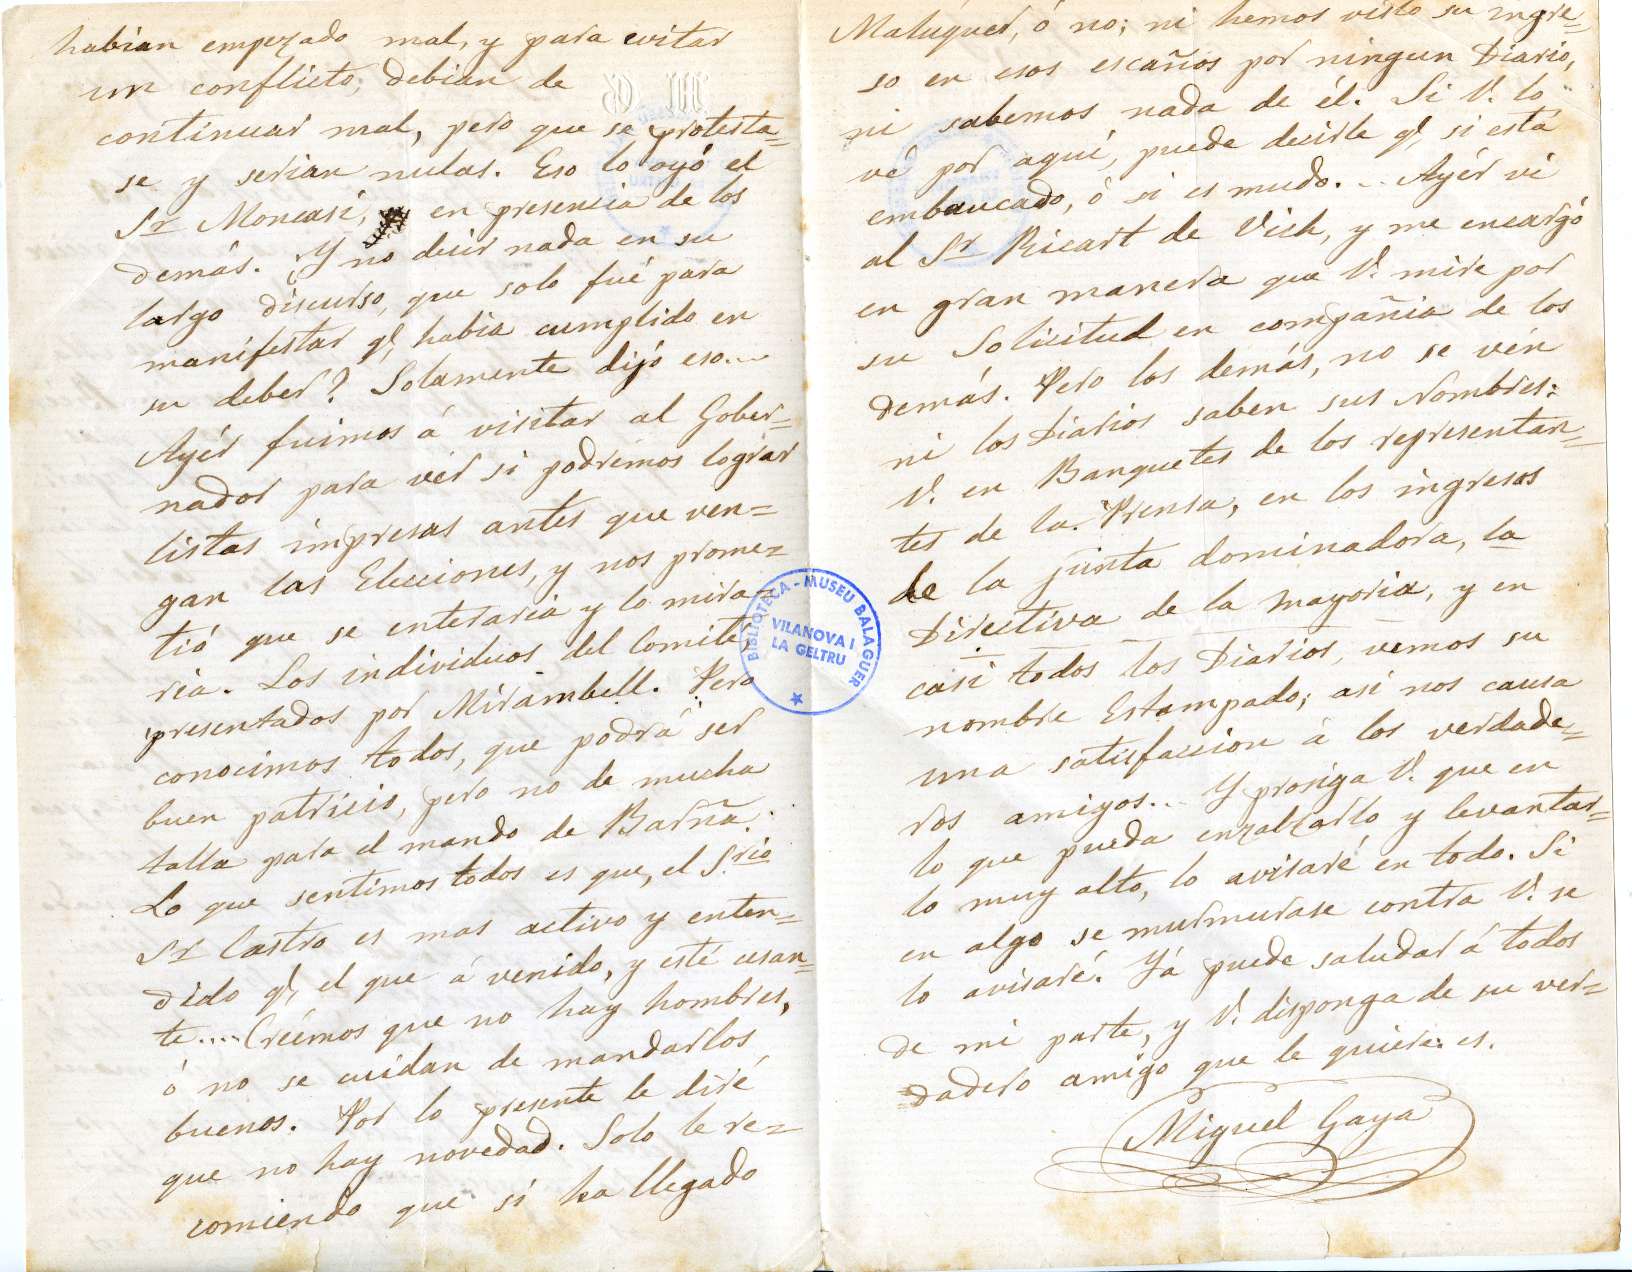 habian empezado mal, y para evitar
un conflicto, debian de
continuar mal, pero que se protesta=
se y serian nulas. Eso lo oyó el
Sr Moncasi, en presencia de los
demás. Y no decir nada en su
largo discurso, que solo fué para
manifestar q', habia cumplido en
su deber? Solamente dijó eso...
Ayér fuimos á visitar al Gober=
nador para vér si podrémos lograr
listas impresas antes que ven=
gan las Elecciones, y nos prome=
tió que se enteraria y lo mira=
ria. Los individuos del Comité,
presentados por Mirambell. Pero
conocimos todos, que podrá ser
buen patricio, pero no de mucha
talla para el mando de Barña.
Lo que sentimos todos es que, el S.rio
Sr Castro es mas activo y enten=
dido q', el que á venido, y esté cesan=
te.... Creémos que no hay hombres,
ó no se cuidan de mandarlos
buenos. Por lo presente le diré
que no hay novedad. Solo le re=
comiendo que si ha llegado
Maluquer, ó no; ni hemos visto su ingre=
so en esos escaños por ningun Diario,
ni sabemos nada de él. Si V. lo
vé por aquí, puede decirle q', si está
embaucado, ó si es mudo... Ayér vi
al Sr Ricart de Vich, y me encargó
en gran manera que V. mire por
su Solicitud en compañia de los
demás. Pero los demás, no se vén
ni los Diarios saben sus Nombres:
V. en Banquetes de los representan=
tes de la Prensa, en los ingresos
de la junta dominadora, la
Directiva de la mayoria, y en
casi todos los Diarios, vemos su
nombre Estampado; asi nos causa
una satisfaccion á los verdade=
ros amigos... Y prosiga V. que en
lo que pueda enzalzarlo y levantar=
lo muy alto, lo avisaré en todo. Si
en algo se murmurase contra V. se
lo avisaré. Yá puede saludar á todos
de mi parte, y V. disponga de su ver=
dadero amigo que le quiere: es.
Miguel Gaya
BIBLIOTECA - MUSEU BALAGUER
VILANOVA I
LA GELTRU